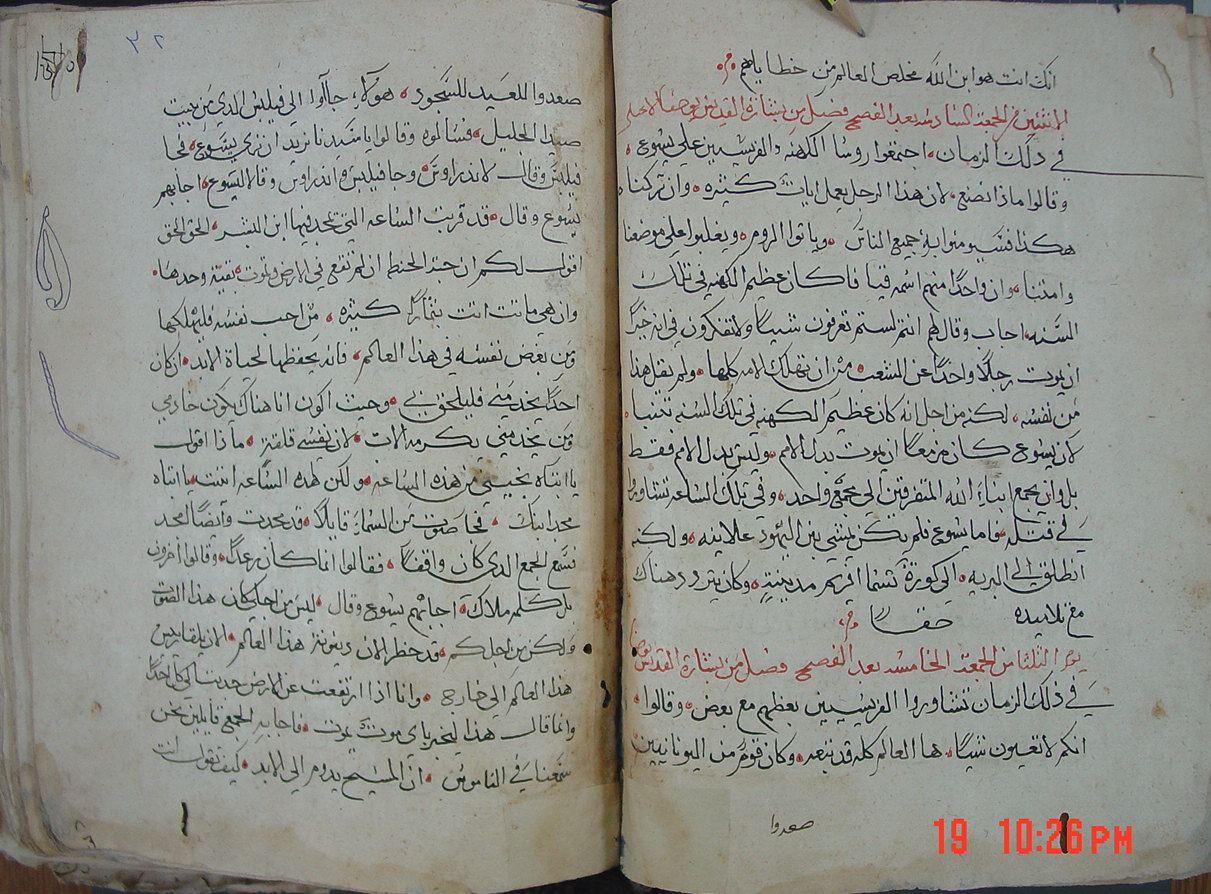 انك انت هو ابن الله مخلص العالم من خطاياهم
الاثنين من الجمعة السادسه بعد الفصح فصل من بشارة القديس يوحنا الانجيلي
في ذلك الزمان اجتمعوا روسا الكهنه والفريسيين على يسوع
وقالوا ماذا نصنع لان هذا الرجل يعمل ايات كثيره وان تركناه
هكذا فسيومنوا به جميع الناس وياتوا الروم ويغلبوا على موضعنا
وامتنا وان واحدا منهم اسمه قيافا كان عظيم الكهنه في تلك
السنه اجاب وقال لهم انتم لستم تعرفون شيا ولا تفكرون في انه خير
ان يموت رجلا واحدا عن الشعب من ان تهلك الامه كلها ولم يقل هذا
من نفسه لكنه من اجل انه كان عظيم الكهنه في تلك السنه تنبا
لان يسوع كان مزمعا ان يموت بدل الامم وليس بدل الامم فقط
بل وان يجمع ابناء الله المتفرقين الى مجمع واحد وفي تلك الساعه تشاوروا
في قتله فاما يسوع فلم يكن يمشي بين اليهود علانيه ولكنه
انطلق الى البريه الى كورة تسما افريم مدينة وكان يتردد هناك
مع تلاميده حقا
يوم الثلثا من الجمعة الخامسه بعد الفصح فصل من بشارة القديس
في ذلك الزمان تشاوروا الفريسيين بعظهم مع بعض وقالوا
انكم لا تعيون شيا ها العالم كله قد تبعه وكان قوم من اليونانيين
صعدوا
٣٢
صعدوا للعيد للسجود هولاء جآلوا الى فيلبس الدي من بيت
صيدا الجليل فسالوه وقالوا يا سيدنا نريد ان نرى يسوع فجا
فيلبس وقال لاندراوس وجا فيلبس واندراوس وقالا ليسوع اجابهم
يسوع وقال قد قربت الساعه التي يتمجد فيها ابن البشر الحق الحق
اقول لكم ان حبة الحنطه ان لم تقع في الارض وتموت بقية وحدها
وان هي ماتت اتت بثمارا كثيره من احب نفسه فليهلكها
ومن بغض نفسه في هذا العالم فانه يحفظها لحياة الابد ان كان
احدا يخدمني فليلحق بي وحيث اكون انا هناك يكون خادمي
ومن يخدمني يكرمه الاب الان نفسي قلقة ماذا اقول
يا ابتاه نجيني من هذه الساعه ولكن لهذه الساعه اتيت يا ابتاه
مجد ابنك فجا صوت من السماء قايلا قد مجدت وايضا امجد
فسمع الجمع الدي كان واقفا فقالوا انما كان رعدا وقالوا اخرون
بل كلمه ملاك اجابهم يسوع وقال ليس من اجلي كان هذا الصوت
ولكن من اجلكم قد حظر الان دينونة هذا العالم الان يلقا رييس
هذا العالم الى خارج وانا اذا ارتفعت عن الارض جدبت الي كل احدا
وانما قال هذا ليخبر باي موت يموت فاجابه الجمع قايلين نحن
سمعنا في الناموس ان المسيح يدوم الى الابد كيف تقول انت
19 10:26 PM